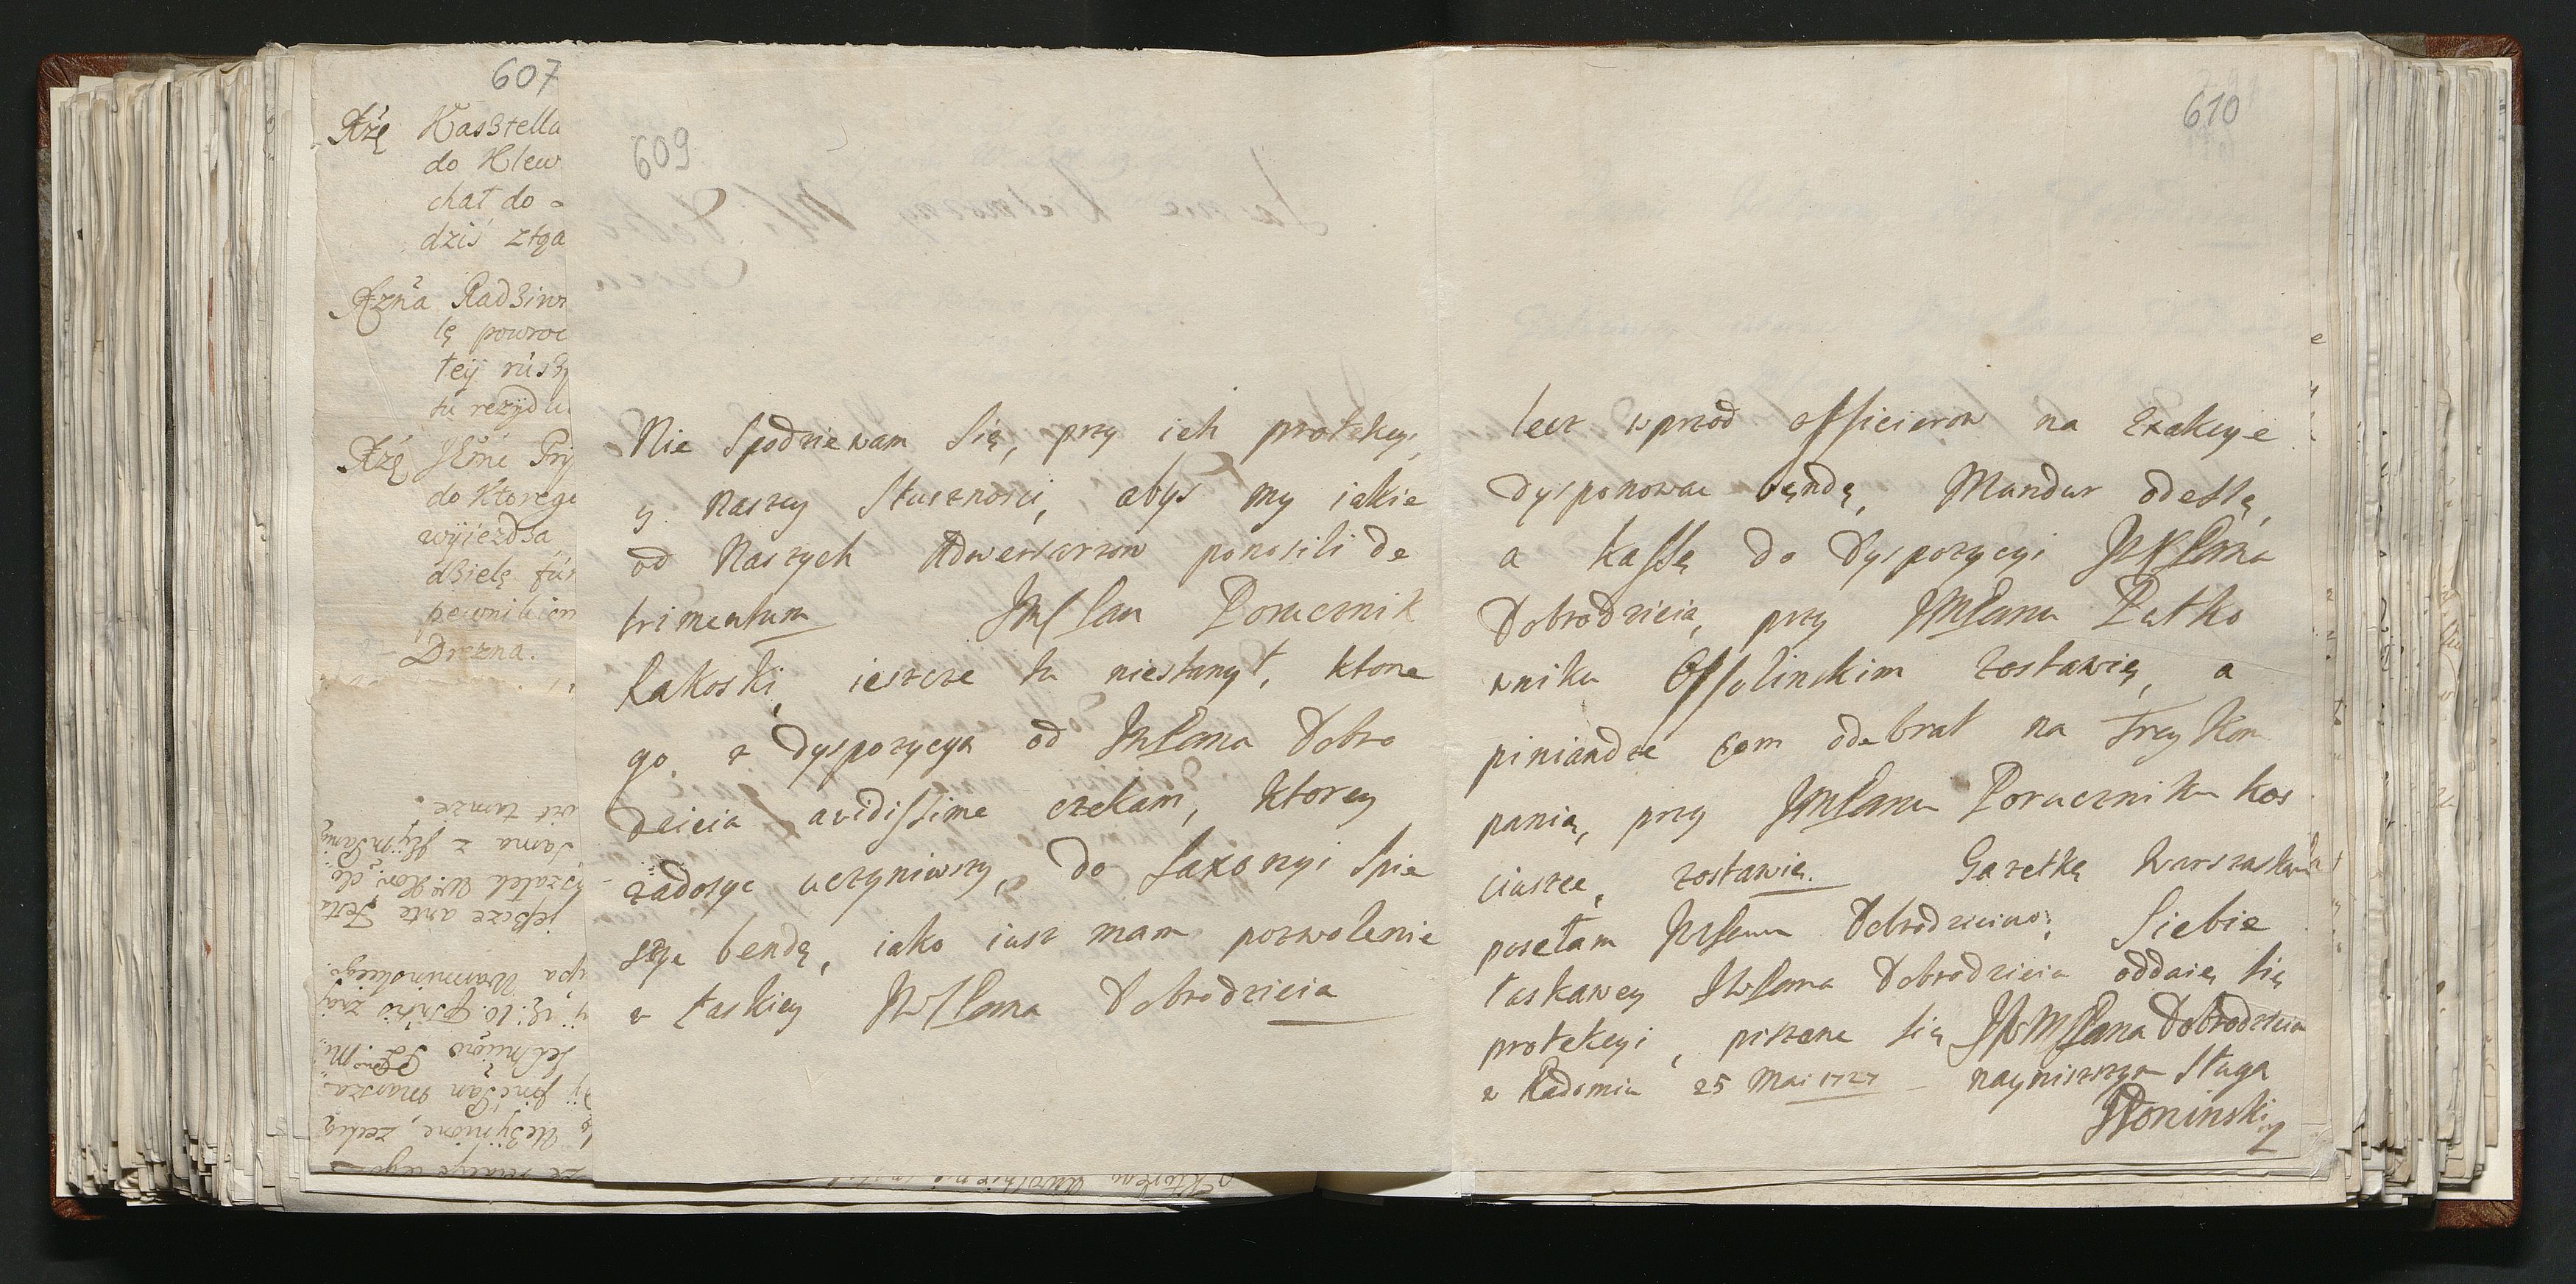 607
Xżę Kasztella
do Klew
chał do -
dziś ztąa
Xżna Radziwi
łę powroc
teÿ ruszÿ
tu rezÿdu
Xżę JEmć Prÿ
do ktorego
wÿiezdza
dzielę fur
pewnikiem
Drezna.
609
Nie Spodziewam Się, przy ich protekcyi,
y Naszey słusznosci, abys my iakie
od Naszych Adwersarzow ponosili de
trimentum JmPan Porucznik
Łakoski, ieszcze tu niestanył, ktore
go z dyspozycya od JmPana Dobro
dzieia avidissime czekam, ktorey
zadosyc uczyniwszy, do Saxonyi Spie
szyc bendę, iako iusz mam pozwolenie
z Łaskiey JWPana Dobrodzieia
610
lecz wprzod officierow na Exakcyie
dysponowac bęndę, Mundur odeslę,
a kassę do dyspozycyi JWPana
Dobrodzieia, przy JMPanu Putko
wniku Ossolinskim zostawię, a
piniandze com odebrał na Trzy Kom
panią, przy JMPanu Poruczniku kos
ciuszce, zostawię. Gazetkę Warszaską
posełam JWPanu Dobrodzieiowi; Siebie
łaskawey JWPana Dobrodzieia oddaię się
protekcyi, piszanc się JWMPana Dobrodzieia
z Radomia 25 Mai 1727 nayniszszym Sługa
JPoninski